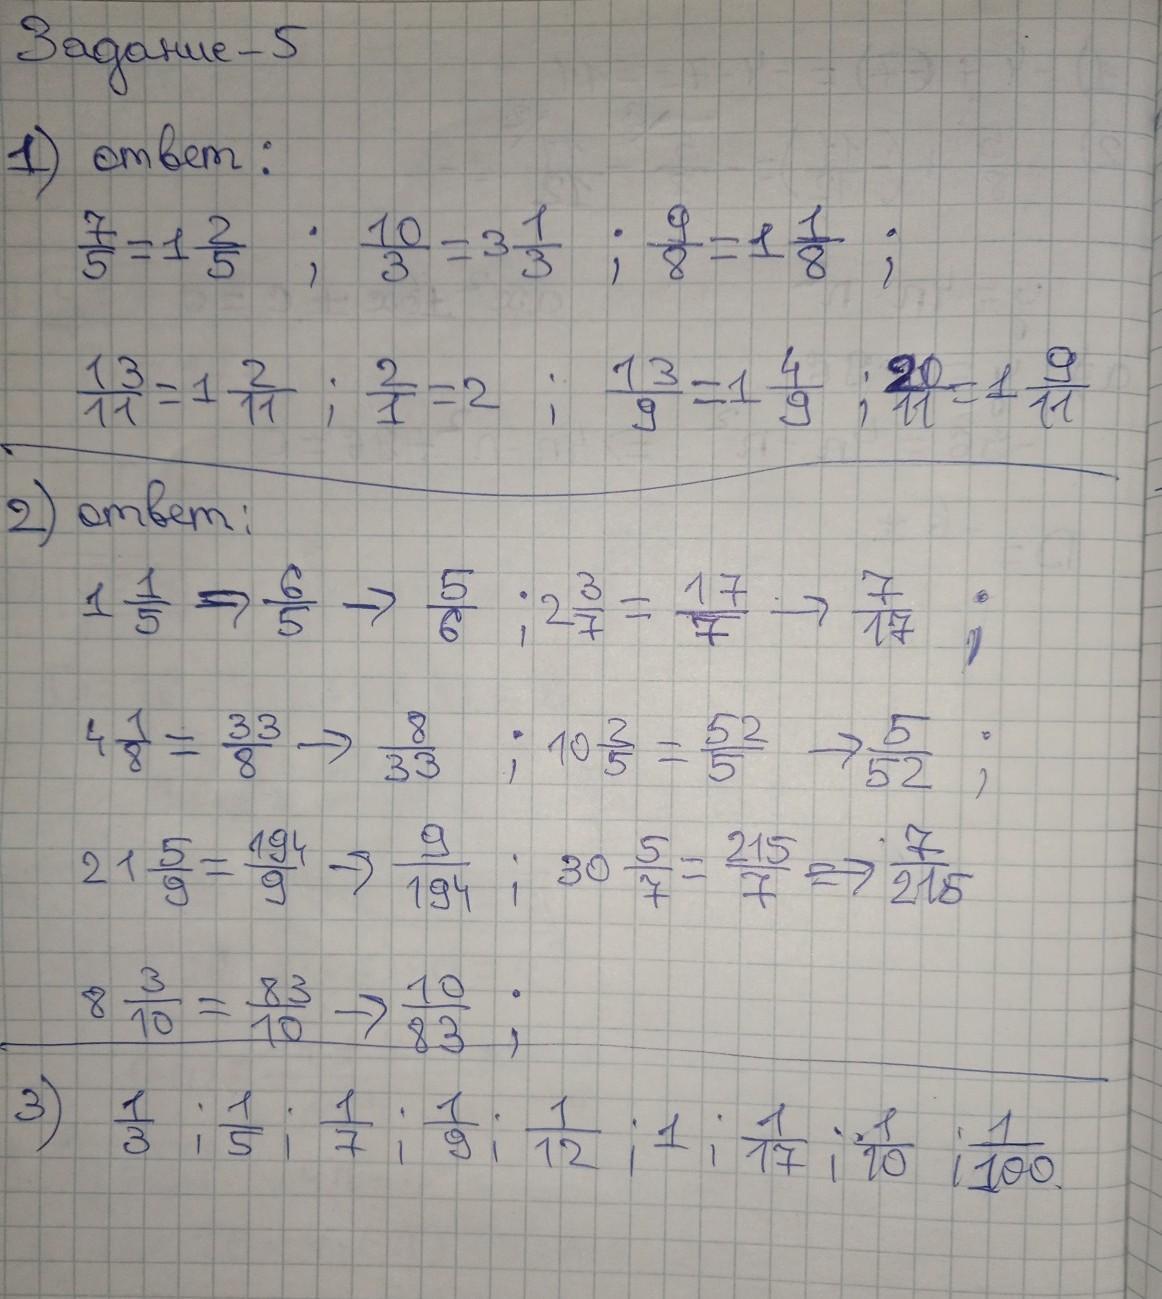 Задание-5
1) ответ:
7/5 = 1 2/5 ; 10/3 = 3 1/3 ; 9/8 = 1 1/8 ;
13/11 = 1 2/11 ; 2/1 = 2 ; 13/9 = 1 4/9 ; 20/11 = 1 9/11
2) ответ:
1 1/5 => 6/5 → 5/6 ; 2 3/7 = 17/7 → 7/17 ;
4 1/8 = 33/8 → 8/33 ; 10 2/5 = 52/5 → 5/52 ;
21 5/9 = 194/9 → 9/194 ; 30 5/7 = 215/7 => 7/215
8 3/10 = 83/10 → 10/83 ;
3) 1/3 ; 1/5 ; 1/7 ; 1/9 ; 1/12 ; 1 ; 1/17 ; 1/10 ; 1/100.